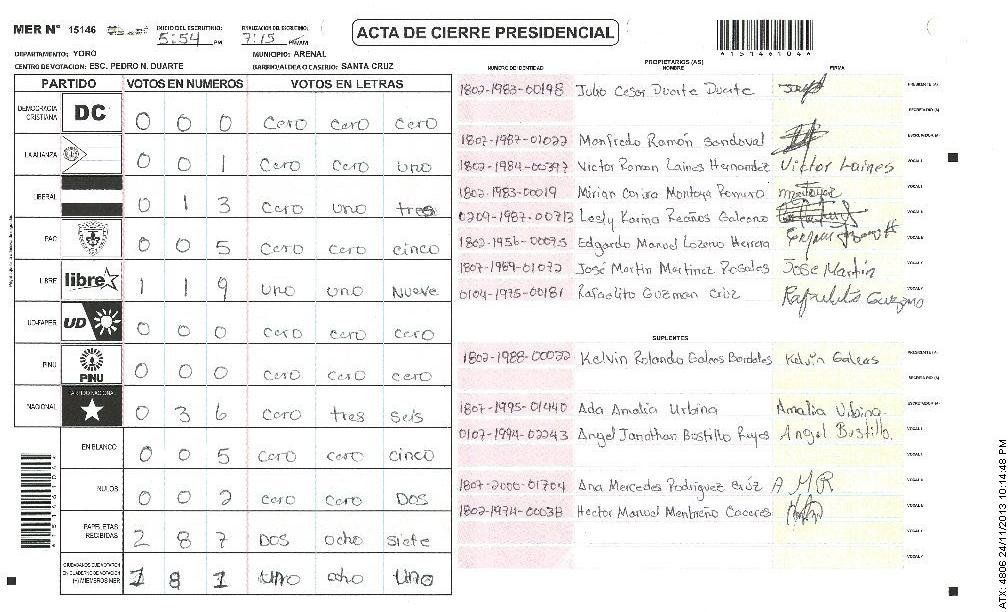 MER Nº 15146 INICIO DEL ESCRUTINIO: 5:54 PM FINALIZACION DEL ESCRUTINIO: 7:15 PM/AM
ACTA DE CIERRE PRESIDENCIAL
DEPARTAMENTO: YORO MUNICIPIO: ARENAL
CENTRO DE VOTACION: ESC. PEDRO N. DUARTE BARRIO/ALDEA O CASERIO: SANTA CRUZ
PARTIDO VOTOS EN NUMEROS VOTOS EN LETRAS
DEMOCRACIA CRISTIANA DC 0 0 0 cero cero cero
LA ALIANZA 0 0 1 cero cero uno
LIBERAL 0 1 3 cero uno tres
PAC 0 0 5 cero cero cinco
LIBRE libre 1 1 9 uno uno Nueve
UD-FAPER UD 0 0 0 cero cero cero
PINU PINU 0 0 0 cero cero cero
NACIONAL PARTIDO NACIONAL 0 3 6 cero tres seis
EN BLANCO 0 0 5 cero cero cinco
NULOS 0 0 2 cero cero DOS
PAPELETAS RECIBIDAS 2 8 7 DOS ocho siete
CIUDADANOS QUE VOTARON EN CUADERNO DE VOTACION (+) MIEMBROS MER 1 8 1 uno ocho uno
PROPIETARIOS (AS)
NUMERO DE IDENTIDAD NOMBRE FIRMA
1802-1983-00198 Julio Cesar Duarte Duarte PRESIDENTE (A)
SECRETARIO (A)
1807-1987-01022 Manfredo Ramón Sandoval ESCRUTADOR (A)
1802-1984-00397 Victor Roman Laines Hernandez Victor Laines VOCAL I
1802-1983-00019 Mirian Montoya Romero
0209-1987-00713 Lesly Karina Galeano
1802-1956-00095 Edgardo Manuel Lozano Herrera
1807-1969-01072 José Martin Martinez Rosales José Martin
0104-1975-00181 Rafaelito Guzman Cruz Rafaelito Guzman
SUPLENTES
1802-1988-00022 Kelvin Rolando Galeas Bardales Kelvin Galeas PRESIDENTE (A)
SECRETARIO (A)
1807-1995-01440 Ada Amalia Urbina Amalia Urbina ESCRUTADOR (A)
0107-1994-02243 Angel Jonathan Bustillo Reyes Angel Bustillo. VOCAL I
1807-2000-01704 Ana Mercedes Rodriguez Cruz A M R
1802-1974-00038 Hector Manuel Membreño Caceres
ATX: 4806 24/11/2013 10:14:48 PM